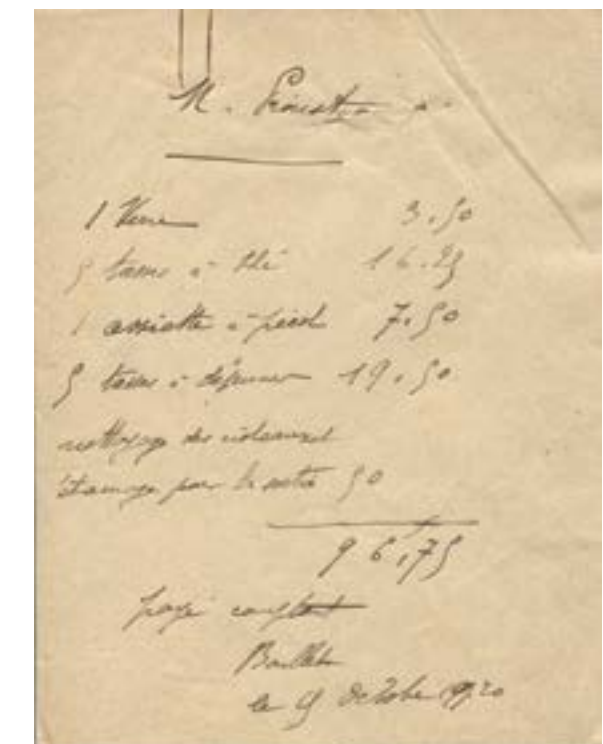 M. Proust
1 Verre 3.50
5 tasses à thé 16.25
1 assiette à pied 7.50
5 tasses à déjeuner 19.50
nettoyage des
pour 50
96,75
payé comptant
le octobre 1920